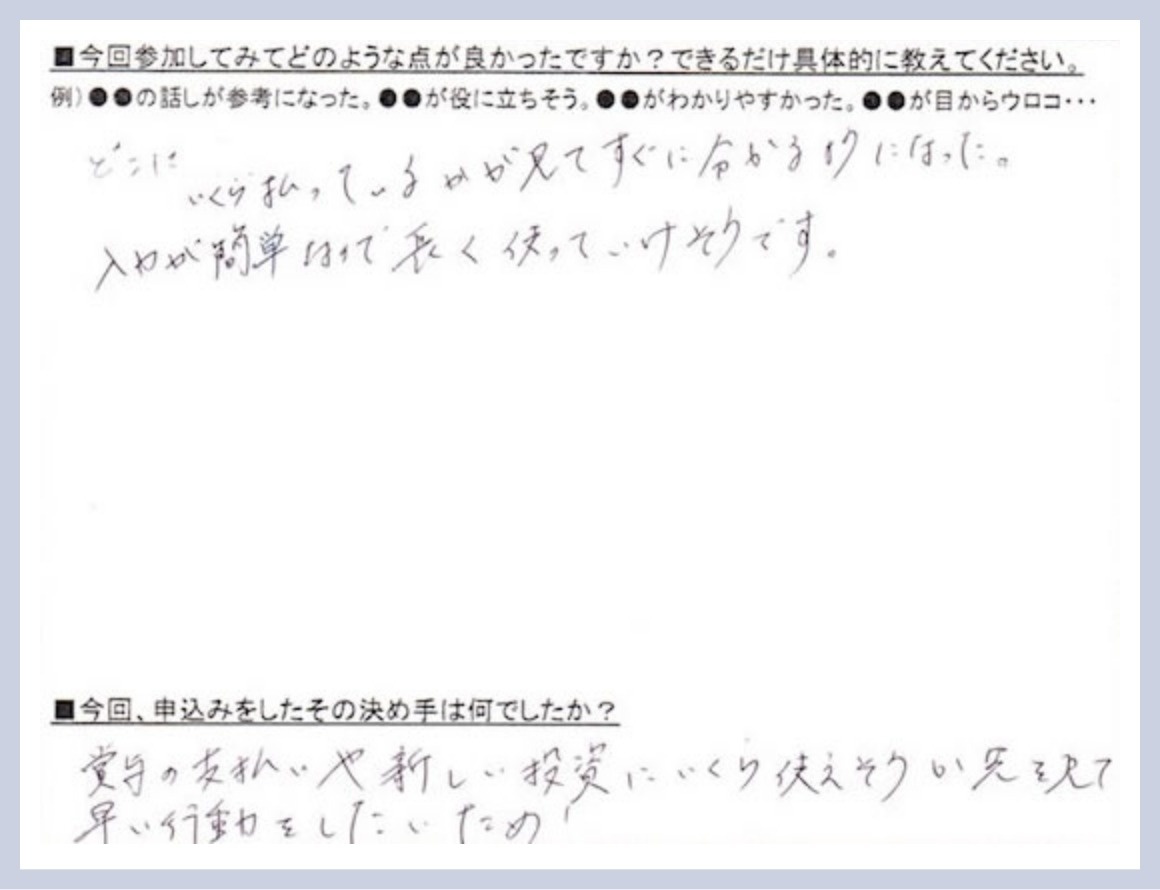 ■今回参加してみてどのような点が良かったですか？できるだけ具体的に教えてください。
例）●●の話しが参考になった。●●が役に立ちそう。●●がわかりやすかった。●●が目からウロコ・・・
どこに
いくら払っているかが見てすぐに分かる様になった。
入力が簡単なので長く使っていけそうです。
■今回、申込みをしたその決め手は何でしたか？
賞与の支払いや新しい投資にいくら使えそうか先を見て
早い行動をしたいため！